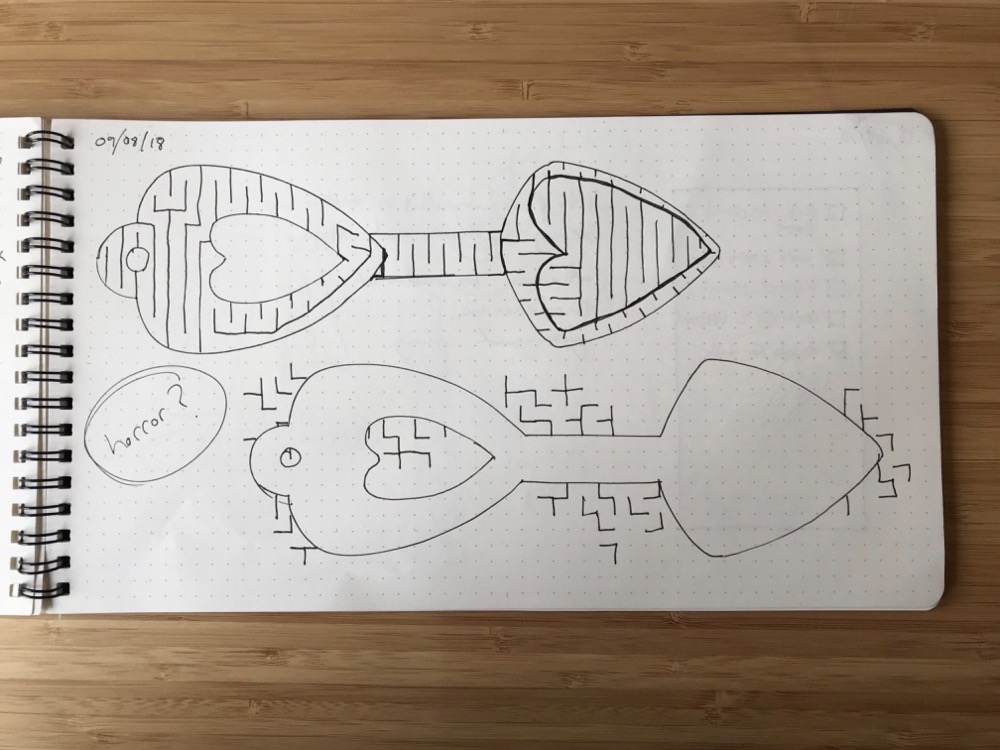 09/08/18
horror?